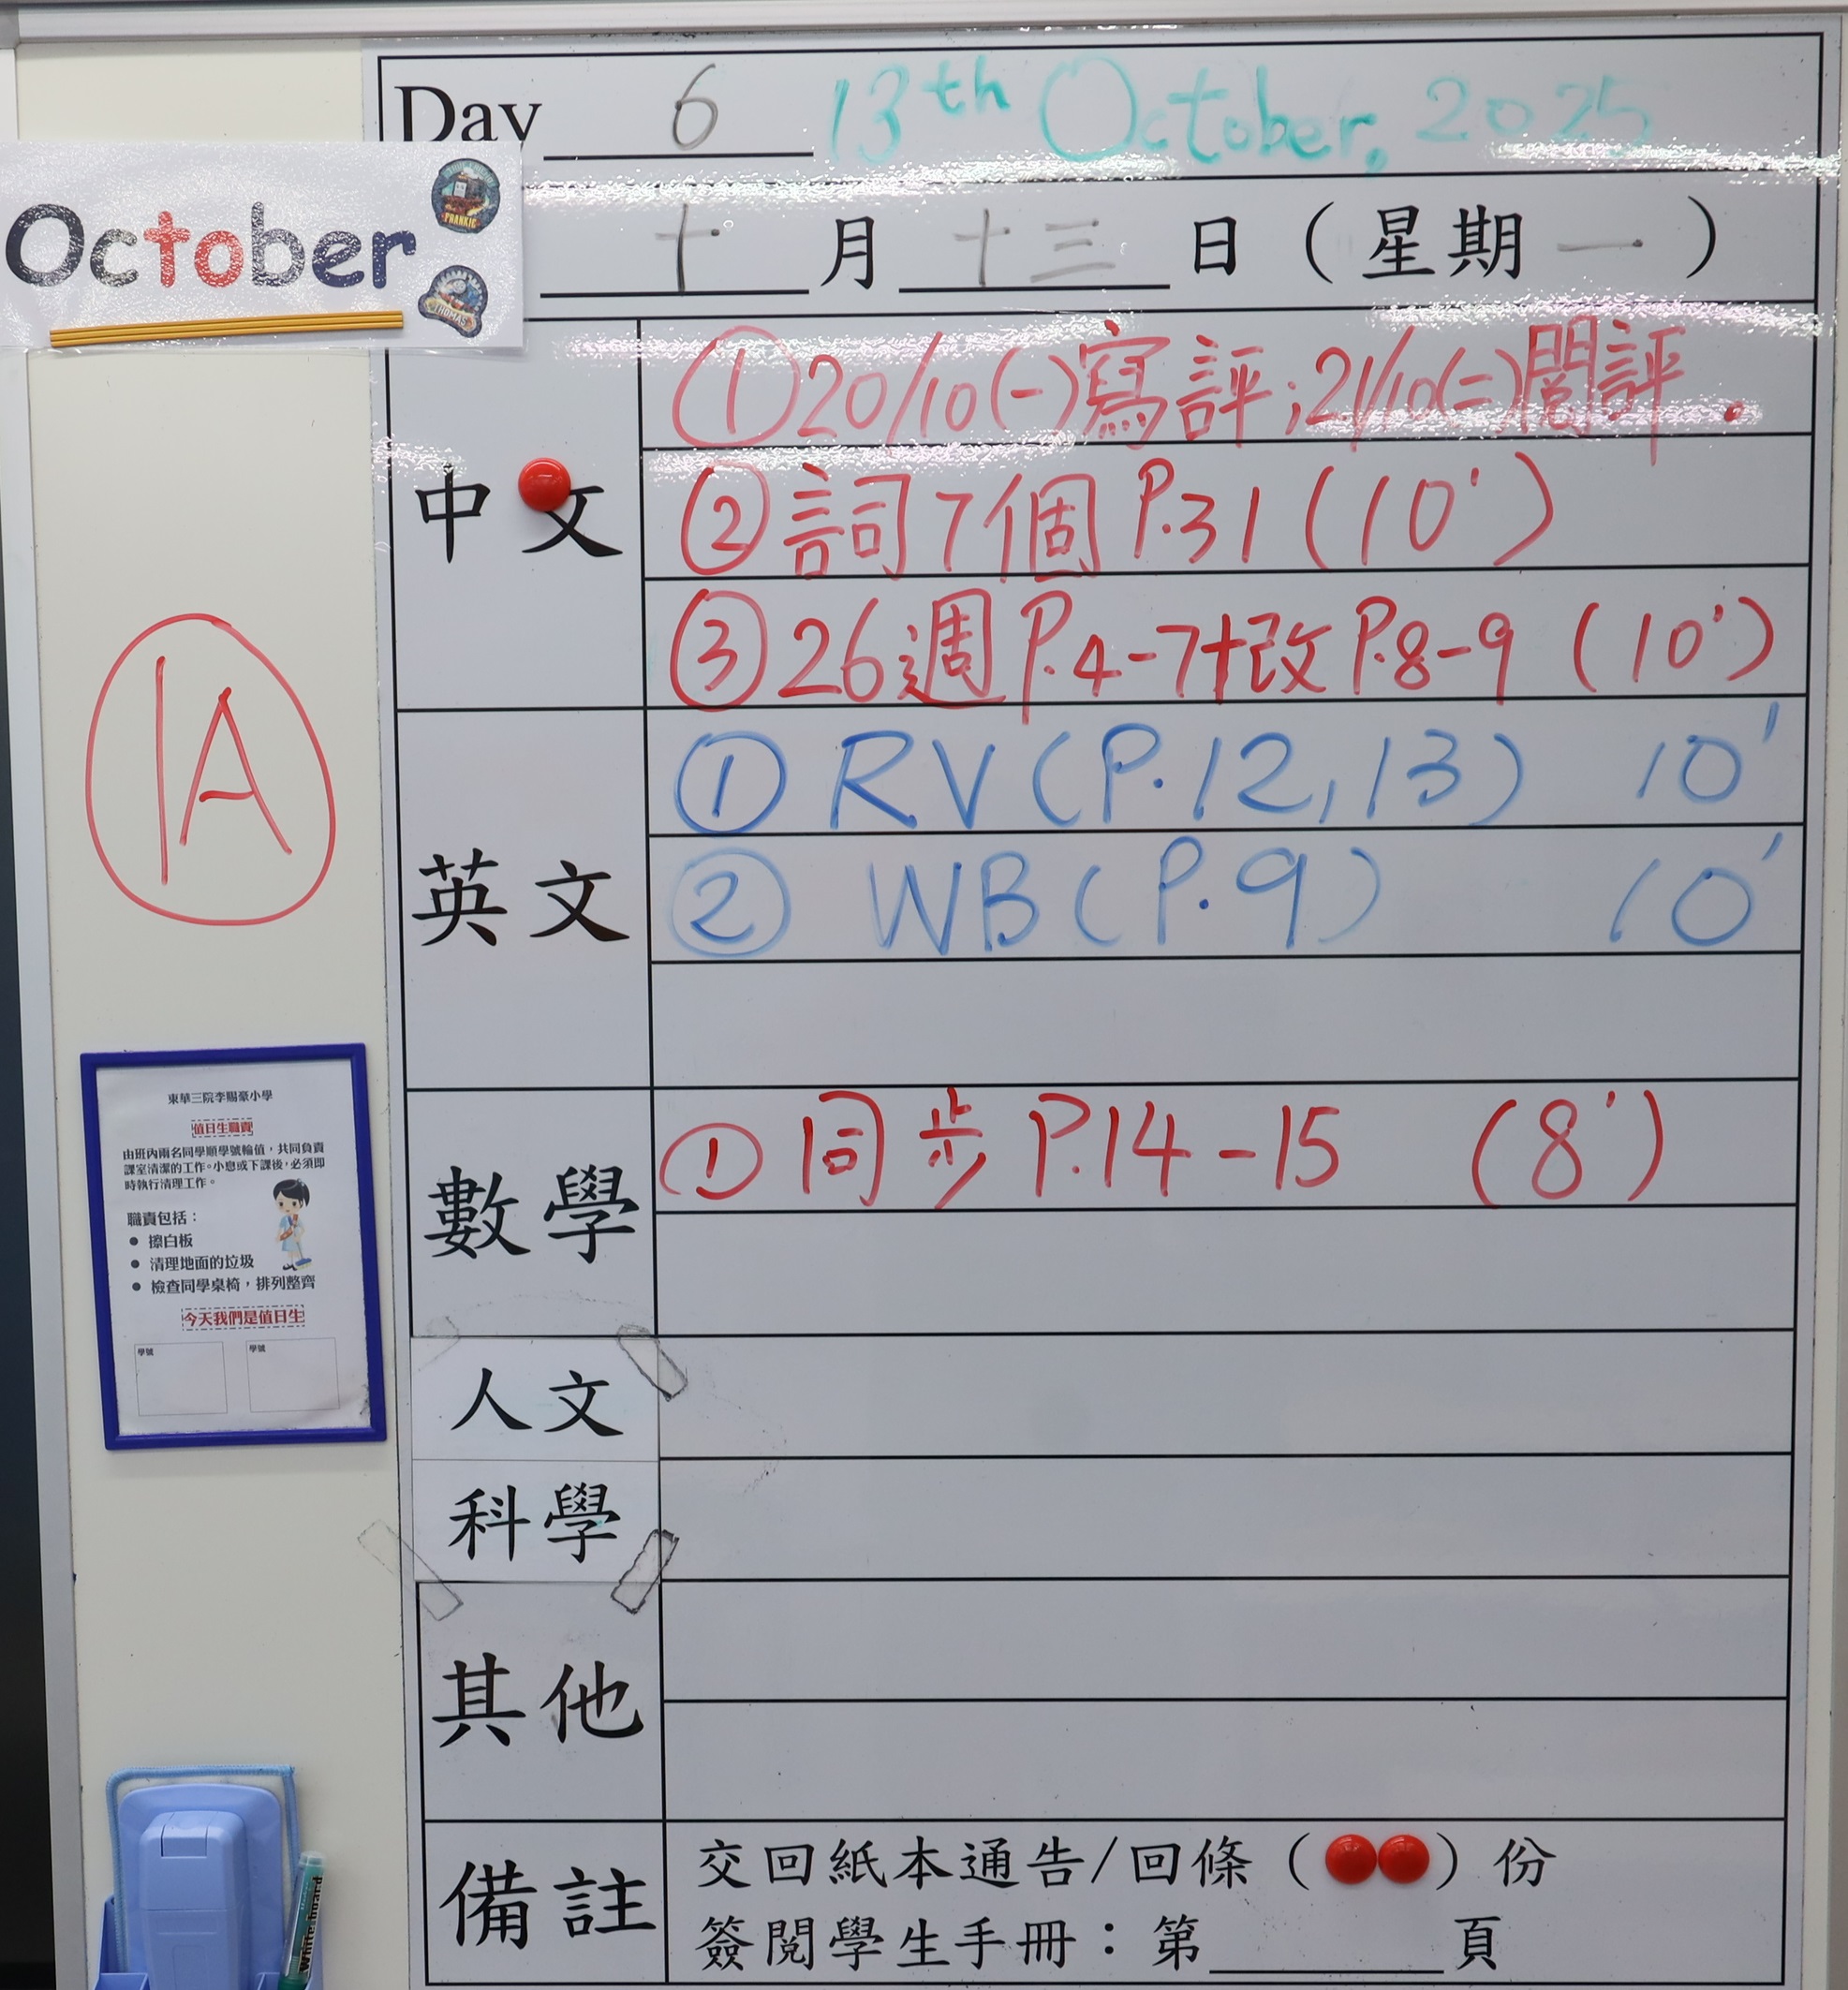 Day 6 13th October, 2025
October
十月十三日（星期一）
中文
①20/10(一)寫評;21/10(二)閱評.
②詞7個P.31(10')
③26週P.4-7+改P.8-9(10')
1A
英文
①RV(P.12,13) 10'
②WB(P.9) 10'
數學
①同步P.14-15 (8')
人文
科學
其他
備註
交回紙本通告/回條（ ）份
簽閱學生手冊：第______頁
東華三院李賜豪小學
值日生職責
由班內兩名同學順學號輪值，共同負責
課室清潔的工作。小息或下課後，必須即
時執行清理工作。
職責包括：
● 擦白板
● 清理地面的垃圾
● 檢查同學桌椅，排列整齊
今天我們是值日生
學號 學號
THOMAS
Whiteboard